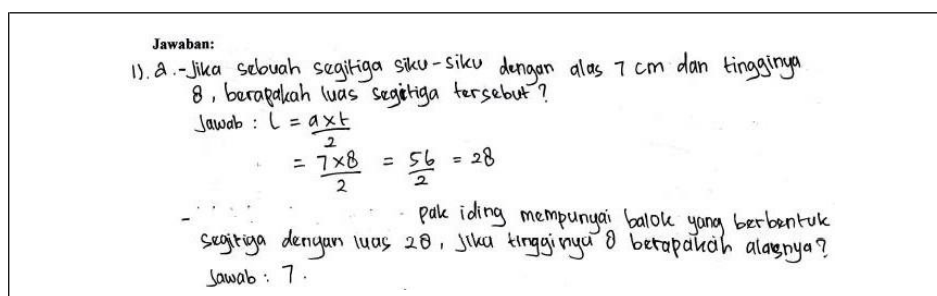 Jawaban:
1). a. - Jika sebuah segitiga siku-siku dengan alas 7 cm dan tingginya
8, berapakah luas segitiga tersebut?
Jawab : L = a×t/2
= 7×8/2 = 56/2 = 28
- pak iding mempunyai balok yang berbentuk
segitiga dengan luas 28, jika tingginya 8 berapakah alasnya?
Jawab : 7.